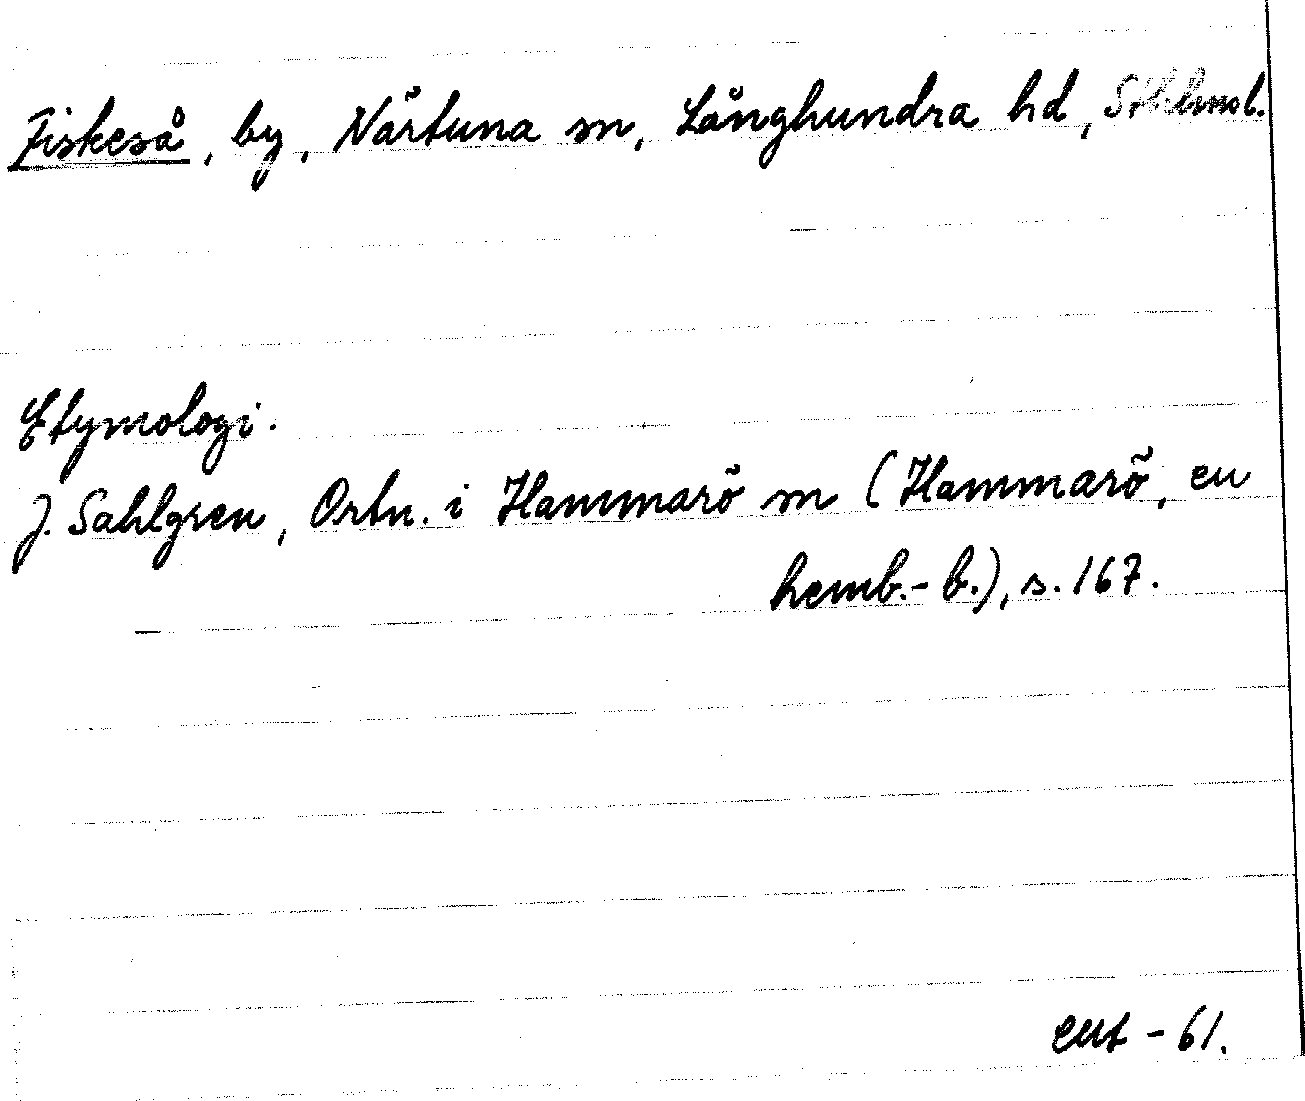 Fiskeså, by, Närtuna sn, Långhundra hd, Sthlmsl.
Etymologi.
J. Sahlgren, Ortn. i Hammarö sn (Hammarö, en
hemb.- b.), s. 167.
- 61.